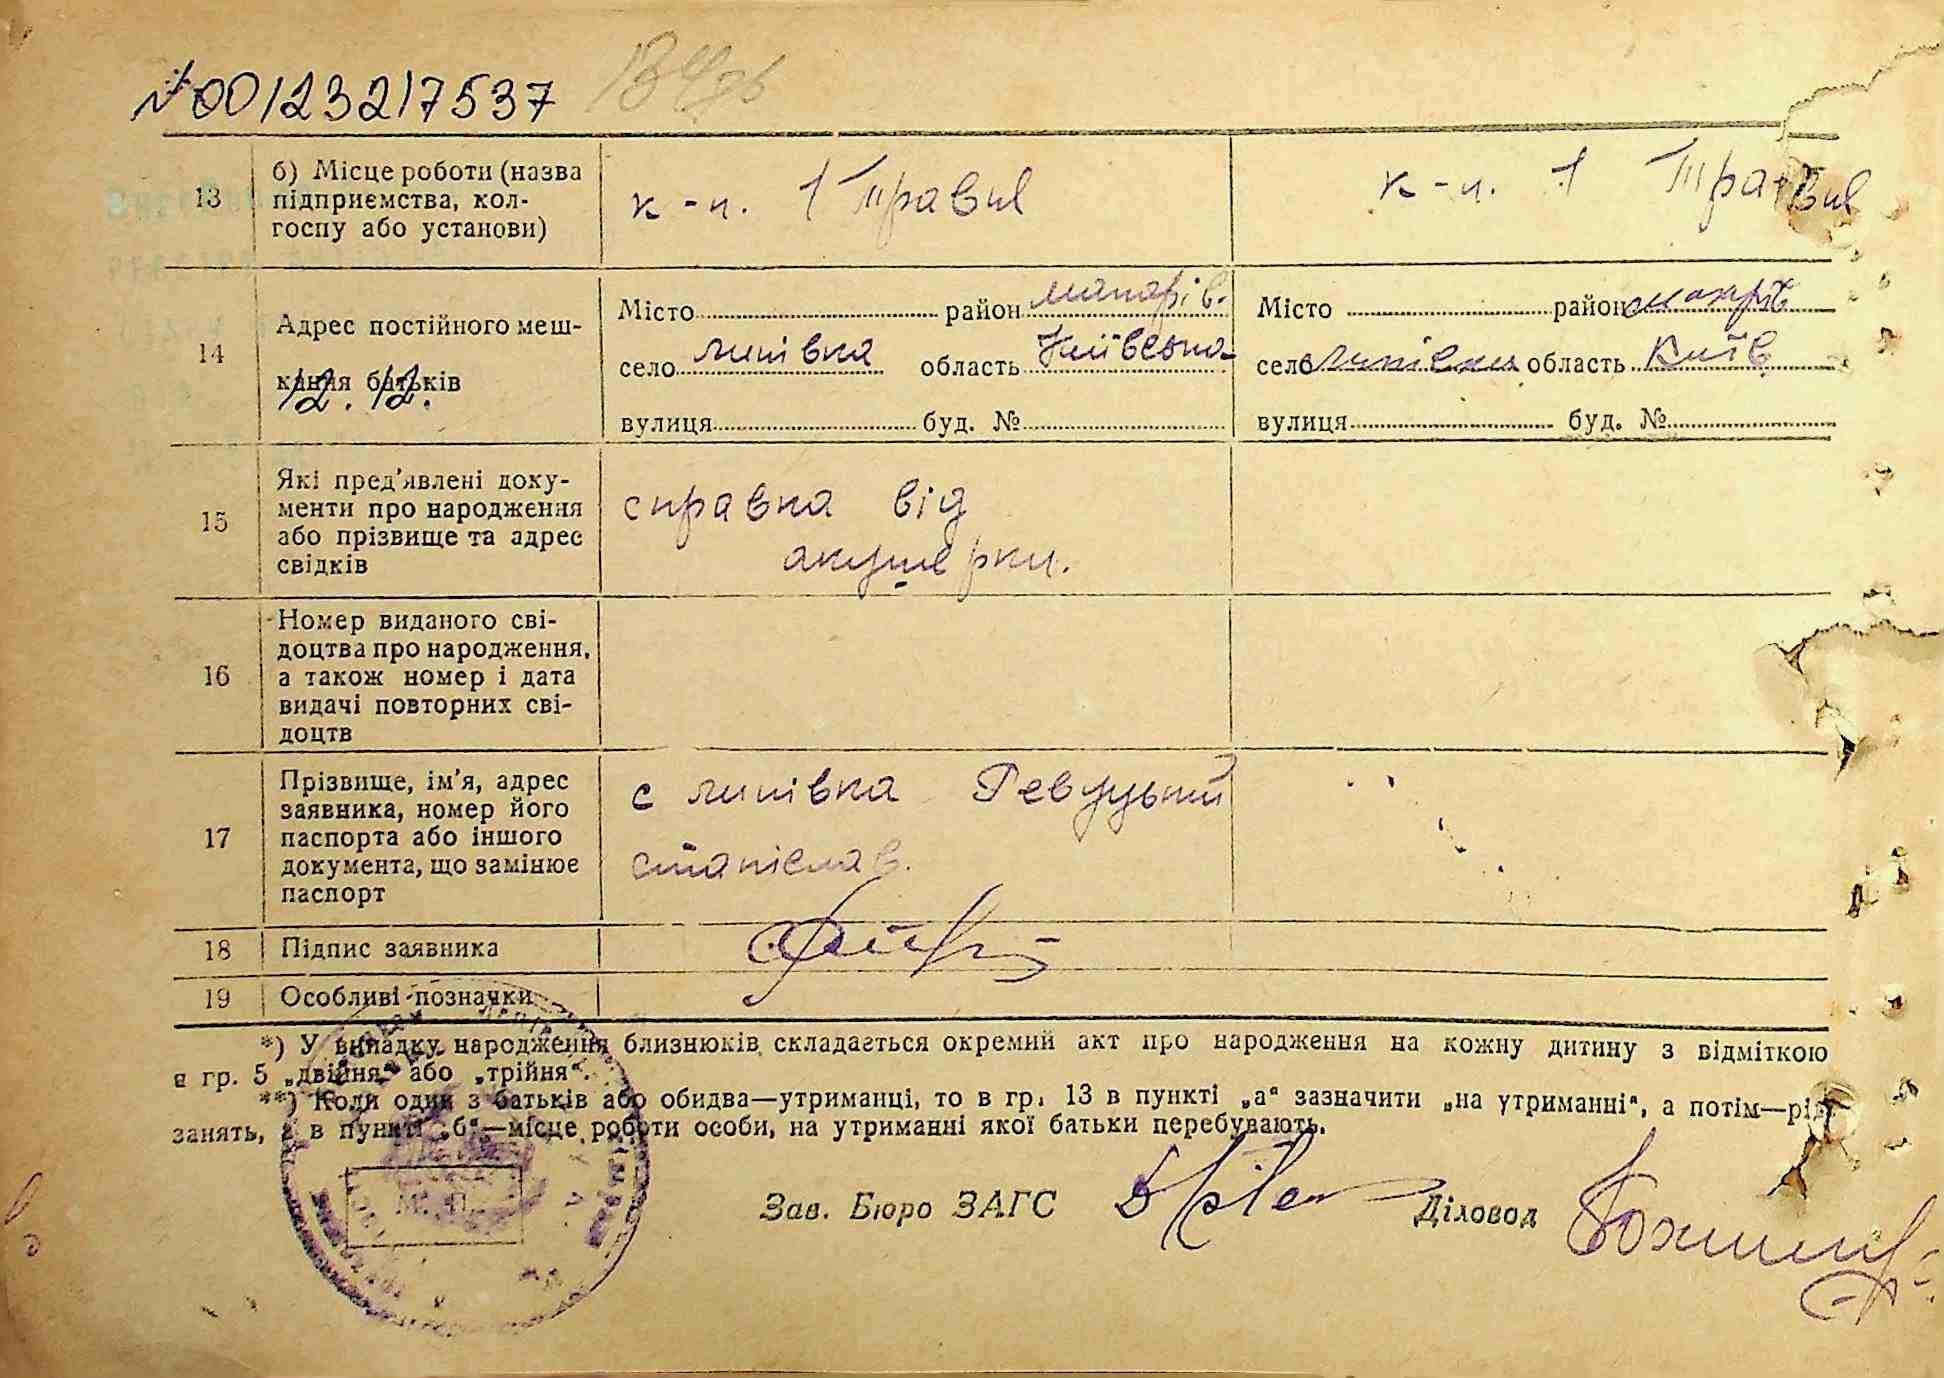 №00123217537
13
б) Місце роботи (назва
підприємства, кол-
госпу або установи)
к-п. 1 Травня
к-п. 1 Травня
14
Адрес постійного меш-
кання батьків
12.12.
Місто район Макарів.
село Липівка область Київська
вулиця буд. №
Місто район Макарів
село Липівка область Київ
вулиця буд. №
15
Які пред'явлені доку-
менти про народження
або прізвище та адрес
свідків
справка від
акушерки.
16
Номер виданого сві-
доцтва про народження,
а також номер і дата
видачі повторних сві-
доцтв
17
Прізвище, ім'я, адрес
заявника, номер його
паспорта або іншого
документа, що замінює
паспорт
с Липівка Ревуцький
Станіслав.
18
Підпис заявника
19
Особливі позначки
*) У випадку народження близнюків складається окремий акт про народження на кожну дитину з відміткою
в гр. 5 „двійня“ або „трійня“.
**) Коли один з батьків або обидва—утриманці, то в гр. 13 в пункті „а“ зазначити „на утриманні“, а потім—рід
занять, а в пункті „б“—місце роботи особи, на утриманні якої батьки перебувають.
М. П.
Зав. Бюро ЗАГС
Діловод